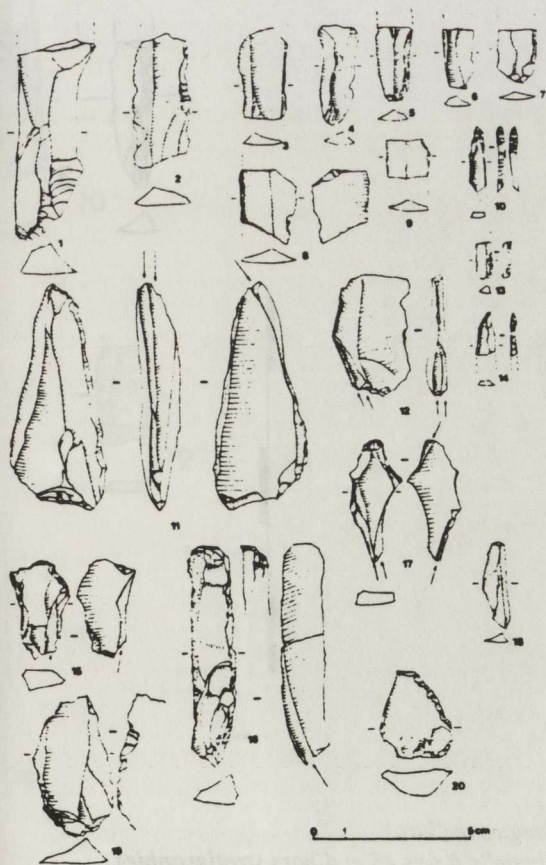 1
2
3
4
5
6
7
8
9
10
13
14
11
12
17
15
16
18
19
20
0 1 5cm